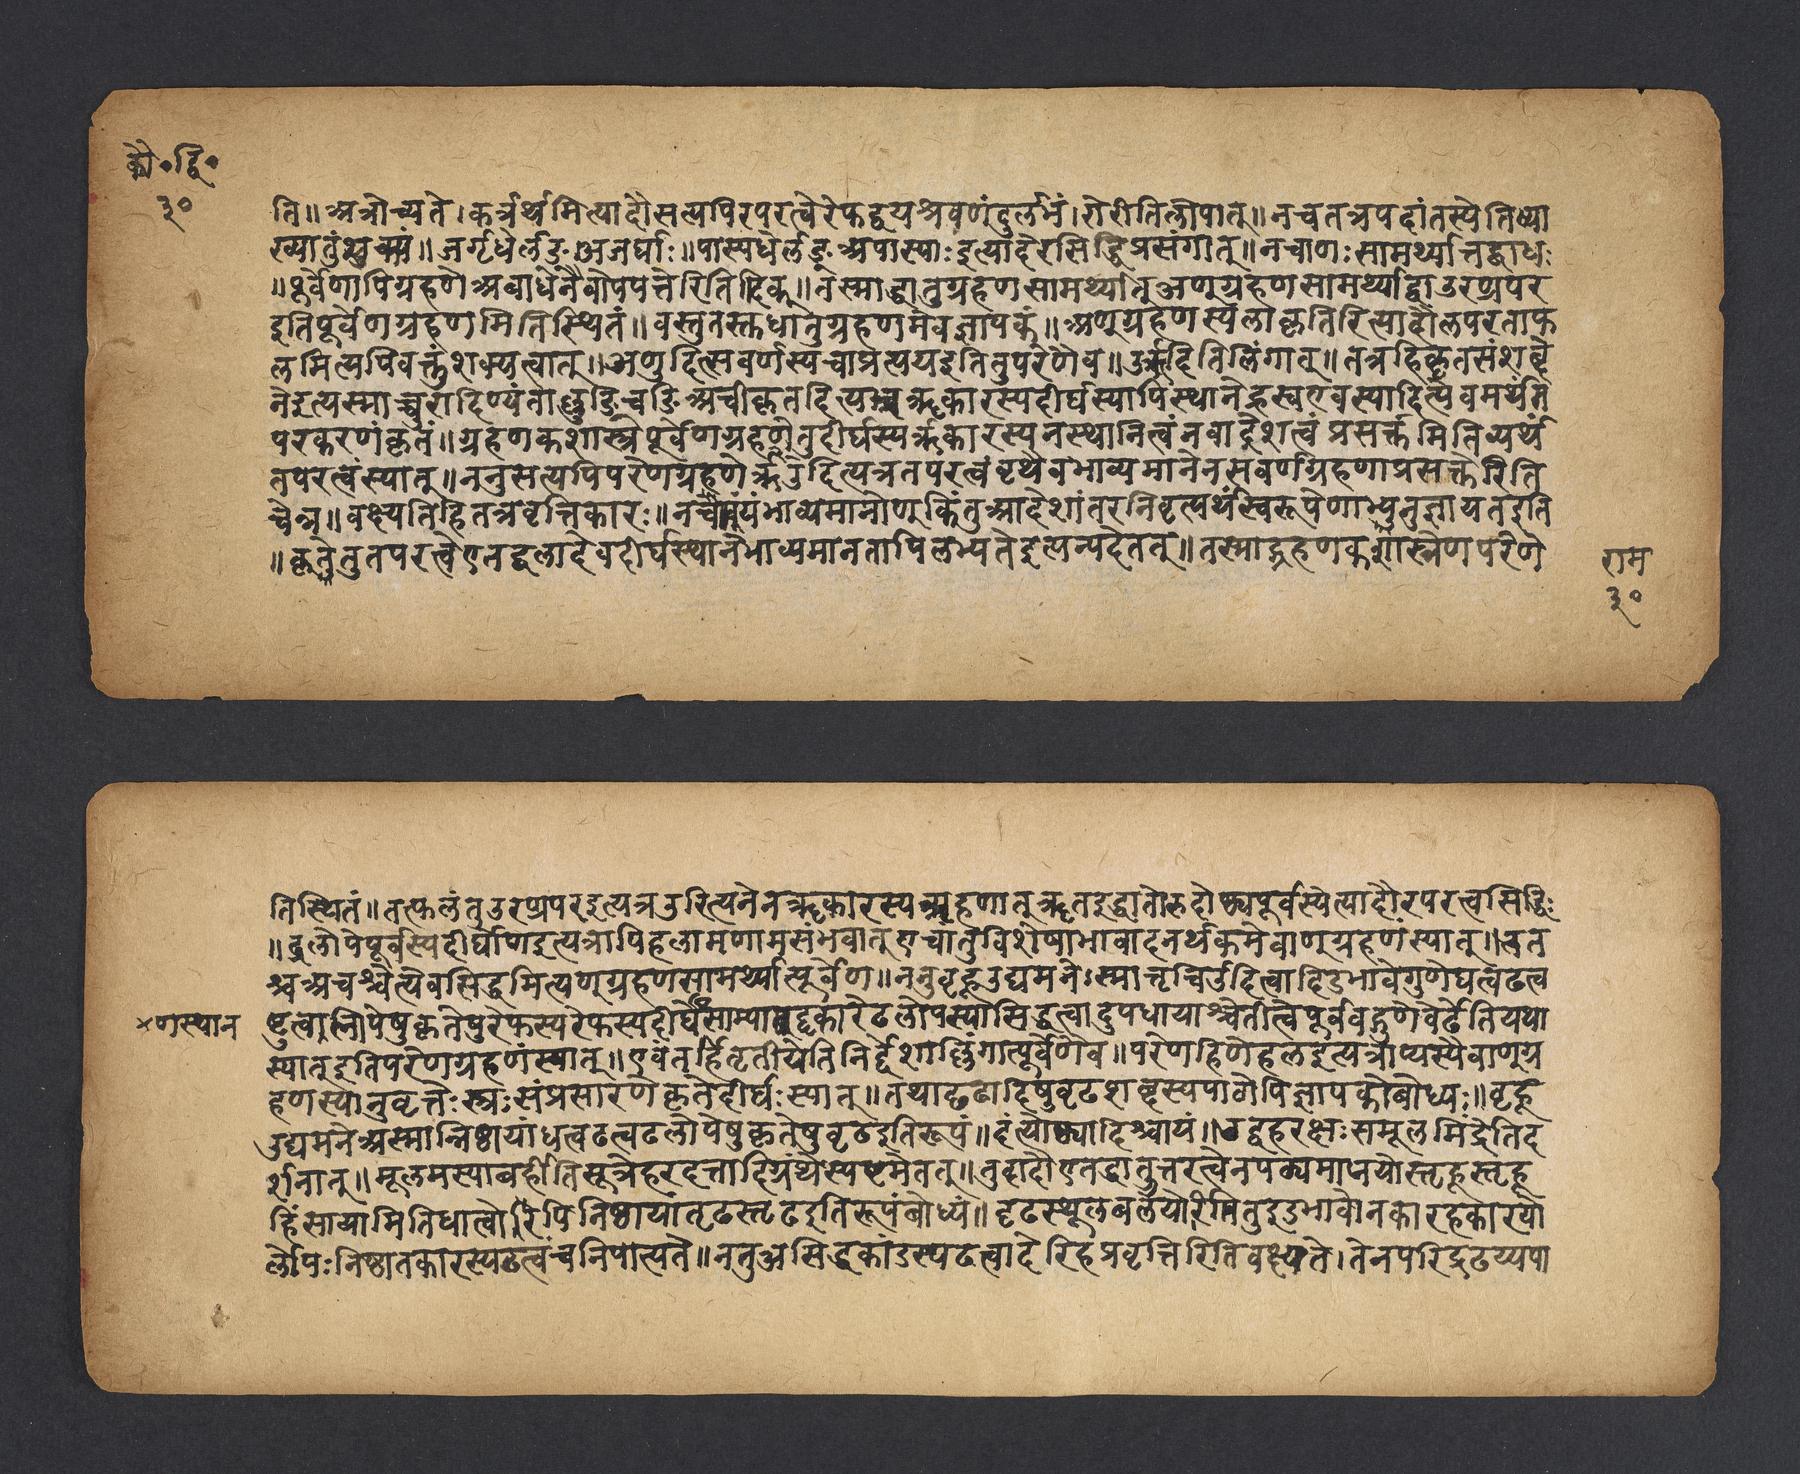 कौ॰द्वि॰
३०
ति॥अत्रोच्यते।कर्त्रर्थमित्यादौसत्यपिरपरत्वेरेफद्वयश्रवणंदुर्लभं।रोरीतिलोपात्॥नचतत्रपदांतस्येतिव्या
ख्यातुंशक्यं॥जर्गृधेर्लङ्अजर्घाः॥पास्पर्धेर्लङ्अपास्पाःइत्यादेरसिद्धिप्रसंगात्॥नचाणःसामर्थ्यात्तद्बाधः
॥पूर्वेणापिग्रहणेअबाधेनैवोपपत्तेरितिदिक्॥तस्माद्धातुग्रहणसामर्थ्यात्तुअण्ग्रहणसामर्थ्याद्वाउरण्रपर
इतिपूर्वेणग्रहणमितिस्थितं॥वस्तुतस्तुधातुग्रहणमेवज्ञापकं॥अण्ग्रहणस्यलाकृतिरित्यादौलपरताफ
लमित्यपिवक्तुंशक्यत्वात्॥अणुदित्सवर्णस्यचाप्रत्ययइतितुपरेणैव॥उर्ऋदितिलिंगात्॥तत्रहिकृतसंशब्द
नेइत्यस्माच्चुरादिण्यंताल्लुङिचङिअचीकृतदित्यत्रॠकारस्यदीर्घस्यापिस्थानेह्रस्वएवस्यादित्येवमर्थंत
परकरणंकृतं॥ग्रहणकशास्त्रेपूर्वेणग्रहणेतुदीर्घस्यॠकारस्यनस्थानित्वंनवादेशत्वंप्रसक्तमितिव्यर्थं
तपरत्वंस्यात्॥ननुसत्यपिपरेणग्रहणेउर्ऋदित्यत्रतपरत्वंवृथैवभाव्यमानेनसवर्णाग्रहणाप्रसक्तेरिति
चेन्न॥वक्ष्यतिहितत्रवृत्तिकारः॥नचायंभाव्यमानोण्किंतुआदेशांतरनिवृत्त्यर्थंस्वरूपेणाभ्यनुज्ञायतइति
॥कृतेतुतपरत्वेएतद्बलादेवदीर्घस्थानेभाव्यमानतापिलभ्यतेइत्यन्यदेतत्॥तस्माद्ग्रहणकशास्त्रेणपरेणे
राम
३०
तिस्थितं॥तत्फलंतुउरण्रपरइत्यत्रउरित्यनेनॠकारस्यग्रहणात्ॠतइद्धातोरुदोष्ठ्यपूर्वस्येत्यादौरपरत्वसिद्धिः
॥ढ्रलोपेपूर्वस्यदीर्घोणइत्यत्रापिहलामणामसंभवात्एचांतुविशेषाभावादनर्थकमेवाण्ग्रहणंस्यात्॥तत
श्चअचश्चेत्येवसिद्धमित्यण्ग्रहणसामर्थ्यात्पूर्वेण॥ननुवृहूउद्यमनेऽस्मात्तृचिऊदित्वादिडभावेगुणेघत्वढत्व
×णस्थान
ष्टुत्वढलोपेषुकृतेषुरेफस्यरेफस्यदीर्घेसाम्यादृकारेढलोपस्यासिद्धत्वादुपधायाश्चेतीत्वेपूर्ववद्गुणेवर्ढेतियथा
स्यात्इतिपरेणग्रहणंस्यात्॥एवंतर्हितृतीयेतिनिर्द्देशाल्लिंगात्पूर्वेणैव॥परेणहिणेहलइत्यत्राप्यस्यैवाण्ग्र
हणस्यानुवृत्तेःस्त्रःसंप्रसारणेकृतेदीर्घःस्यात्॥तथादृढादिषुवृढशब्दस्यपाठोपिज्ञापकोबोध्यः॥वृहू
उद्यमनेअस्मान्निष्ठायांधत्वढत्वढलोपेषुकृतेषुवृढइतिरूपं॥दंत्योष्ठ्यादिश्चायं॥उद्वृहरक्षःसमूलमिंद्रेतिद
र्शनात्॥मूलमस्याबर्हीतिसूत्रेहरदत्तादिग्रंथेस्पष्टमेतत्॥तुदादौएतद्धातूत्तरत्वेनपठ्यमानयोस्तृहूस्तृहू
हिंसायामितिधात्वोरपिनिष्ठायांतृढस्तृढइतिरूपंबोध्यं॥दृढस्थूलबलयोरितितुइडभावोनकारहकारयो
र्लोपःनिष्ठातकारस्यढत्वंचनिपात्यते॥नतुअसिद्धकांडस्थढत्वादेरिहप्रवृत्तिरितिवक्ष्यते।तेनपरिद्रढय्यपा